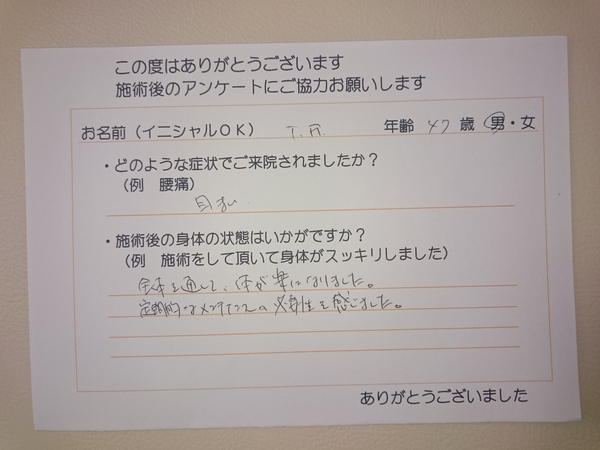 この度はありがとうございます
施術後のアンケートにご協力お願いします
お名前（イニシャルOK） T.A. 年齢 47 歳 男・女
・どのような症状でご来院されましたか？
（例 腰痛）
目まい
・施術後の身体の状態はいかがですか？
（例 施術をして頂いて身体がスッキリしました）
全体を通して、体が楽になりました。
定期的なメンテナンスの必要性を感じました。
ありがとうございました